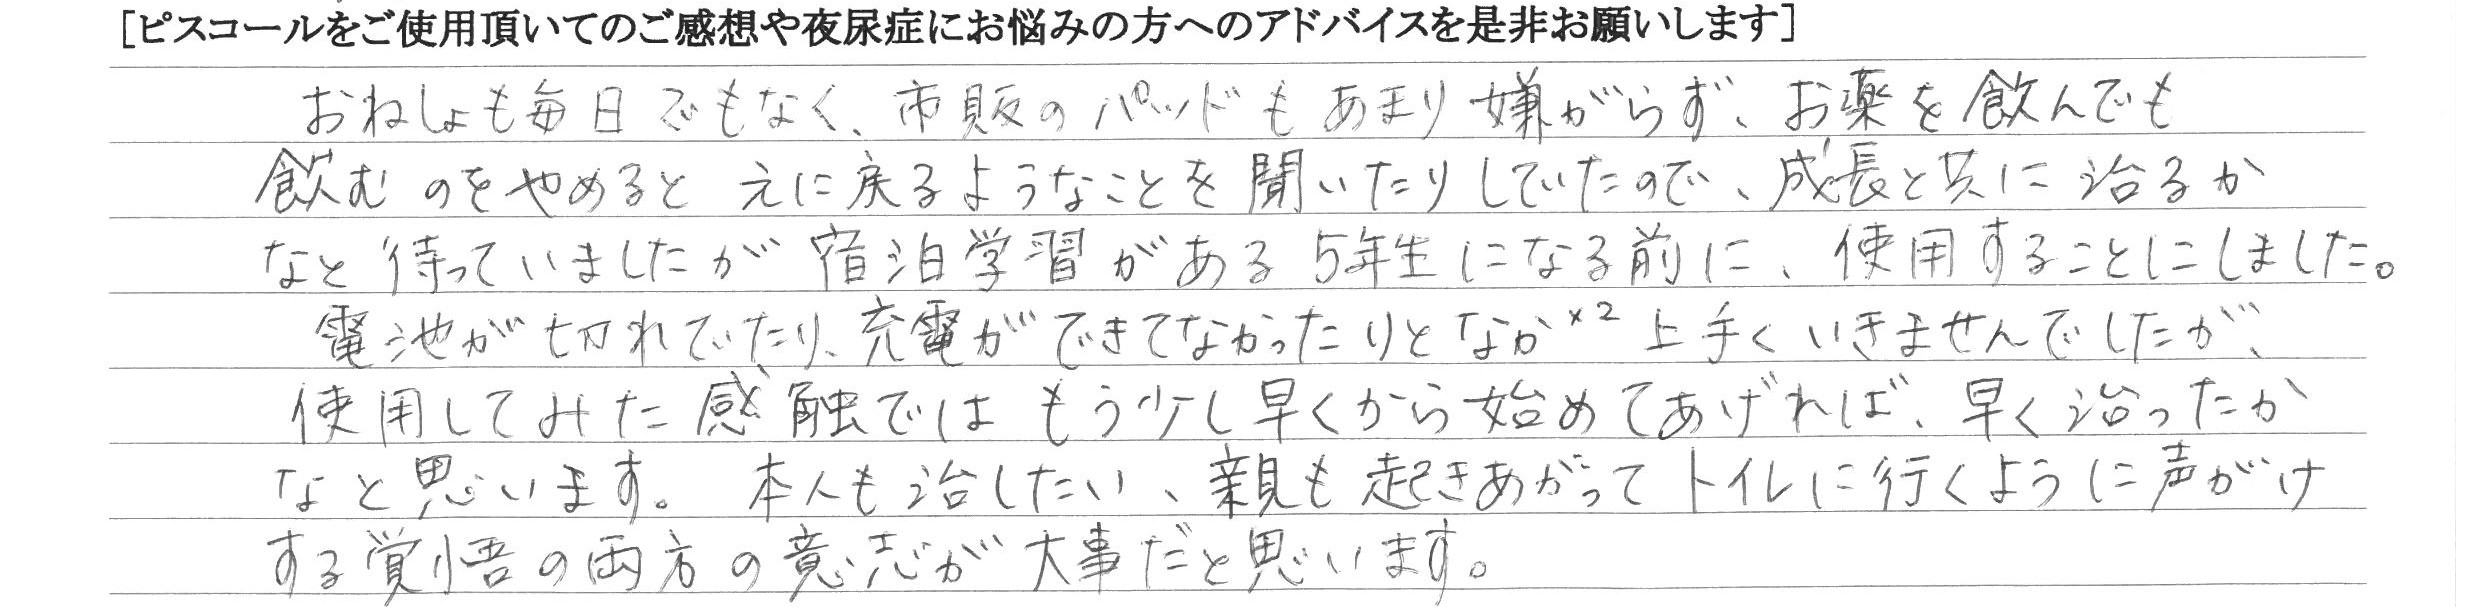 [ピスコールをご使用頂いてのご感想や夜尿症にお悩みの方へのアドバイスを是非お願いします]
おねしょも毎日でもなく、市販のパッドもあまり嫌がらず、お薬を飲んでも
飲むのをやめると元に戻るようなことを聞いたりしていたので、成長と共に治るか
なと待っていましたが宿泊学習がある5年生になる前に、使用することにしました。
電池が切れていたり、充電ができてなかったりとなか×2上手くいきませんでしたが、
使用してみた感触ではもう少し早くから始めてあげれば、早く治ったか
なと思います。本人も治したい、親も起きあがってトイレに行くように声がけ
する覚悟の両方の意志が大事だと思います。